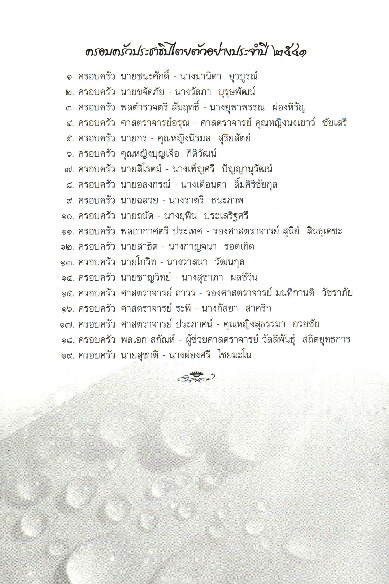 ครอบครัวประชาธิปไตยตัวอย่างประจำปี ๒๕๔๑
๑. ครอบครัว นายชนะศักดิ์ - นางมานิตา ยุวบูรณ์
๒. ครอบครัว นายขจัดภัย - นางวัลภา บุรุษพัฒน์
๓. ครอบครัว พลตำรวจตรี สัมฤทธิ์ - นางยุพาพรรณ ผ่องหิรัญ
๔. ครอบครัว ศาสตราจารย์อรุณ - ศาสตราจารย์ คุณหญิงนงเยาว์ ชัยเสรี
๕. ครอบครัว นายกร - คุณหญิงนิรมล สุริยสัตย์
๖. ครอบครัว คุณหญิงบุญเจือ กิติวัฒน์
๗. ครอบครัว นายสิโรตม์ - นางเพ็ญศรี ปัญญานุวัฒน์
๘. ครอบครัว นายอลงกรณ์ - นางเตือนตา ลิ้มศิริชัยกุล
๙. ครอบครัว นายฉลวย - นางราตรี ธนะภาพ
๑๐. ครอบครัว นายถนัด - นางยุพิน ประเสริฐศรี
๑๑. ครอบครัว พลอากาศตรี ประเทศ - รองศาสตราจารย์ สุนีย์ สินธุเดชะ
๑๒. ครอบครัว นายสาธิต - นางกาญจนา รอดเกิด
๑๓. ครอบครัว นายโกวิท - นางวาสนา วัฒนกุล
๑๔. ครอบครัว นายชาญวิทย์ - นางสุชาภา ผลชีวิน
๑๕. ครอบครัว ศาสตราจารย์ ถาวร - รองศาสตราจารย์ มนทิกานติ วัชราภัย
๑๖. ครอบครัว ศาสตราจารย์ ระพี - นางกัลยา สาคริก
๑๗. ครอบครัว ศาสตราจารย์ ประภาศน์ - คุณหญิงสุธรรมา อวยชัย
๑๘. ครอบครัว พลเอก สกัณห์ - ผู้ช่วยศาสตราจารย์ วัลลีพันธุ์ สถิตยุทธการ
๑๙. ครอบครัว นายสุชาติ - นางผ่องศรี ไชยมะโน